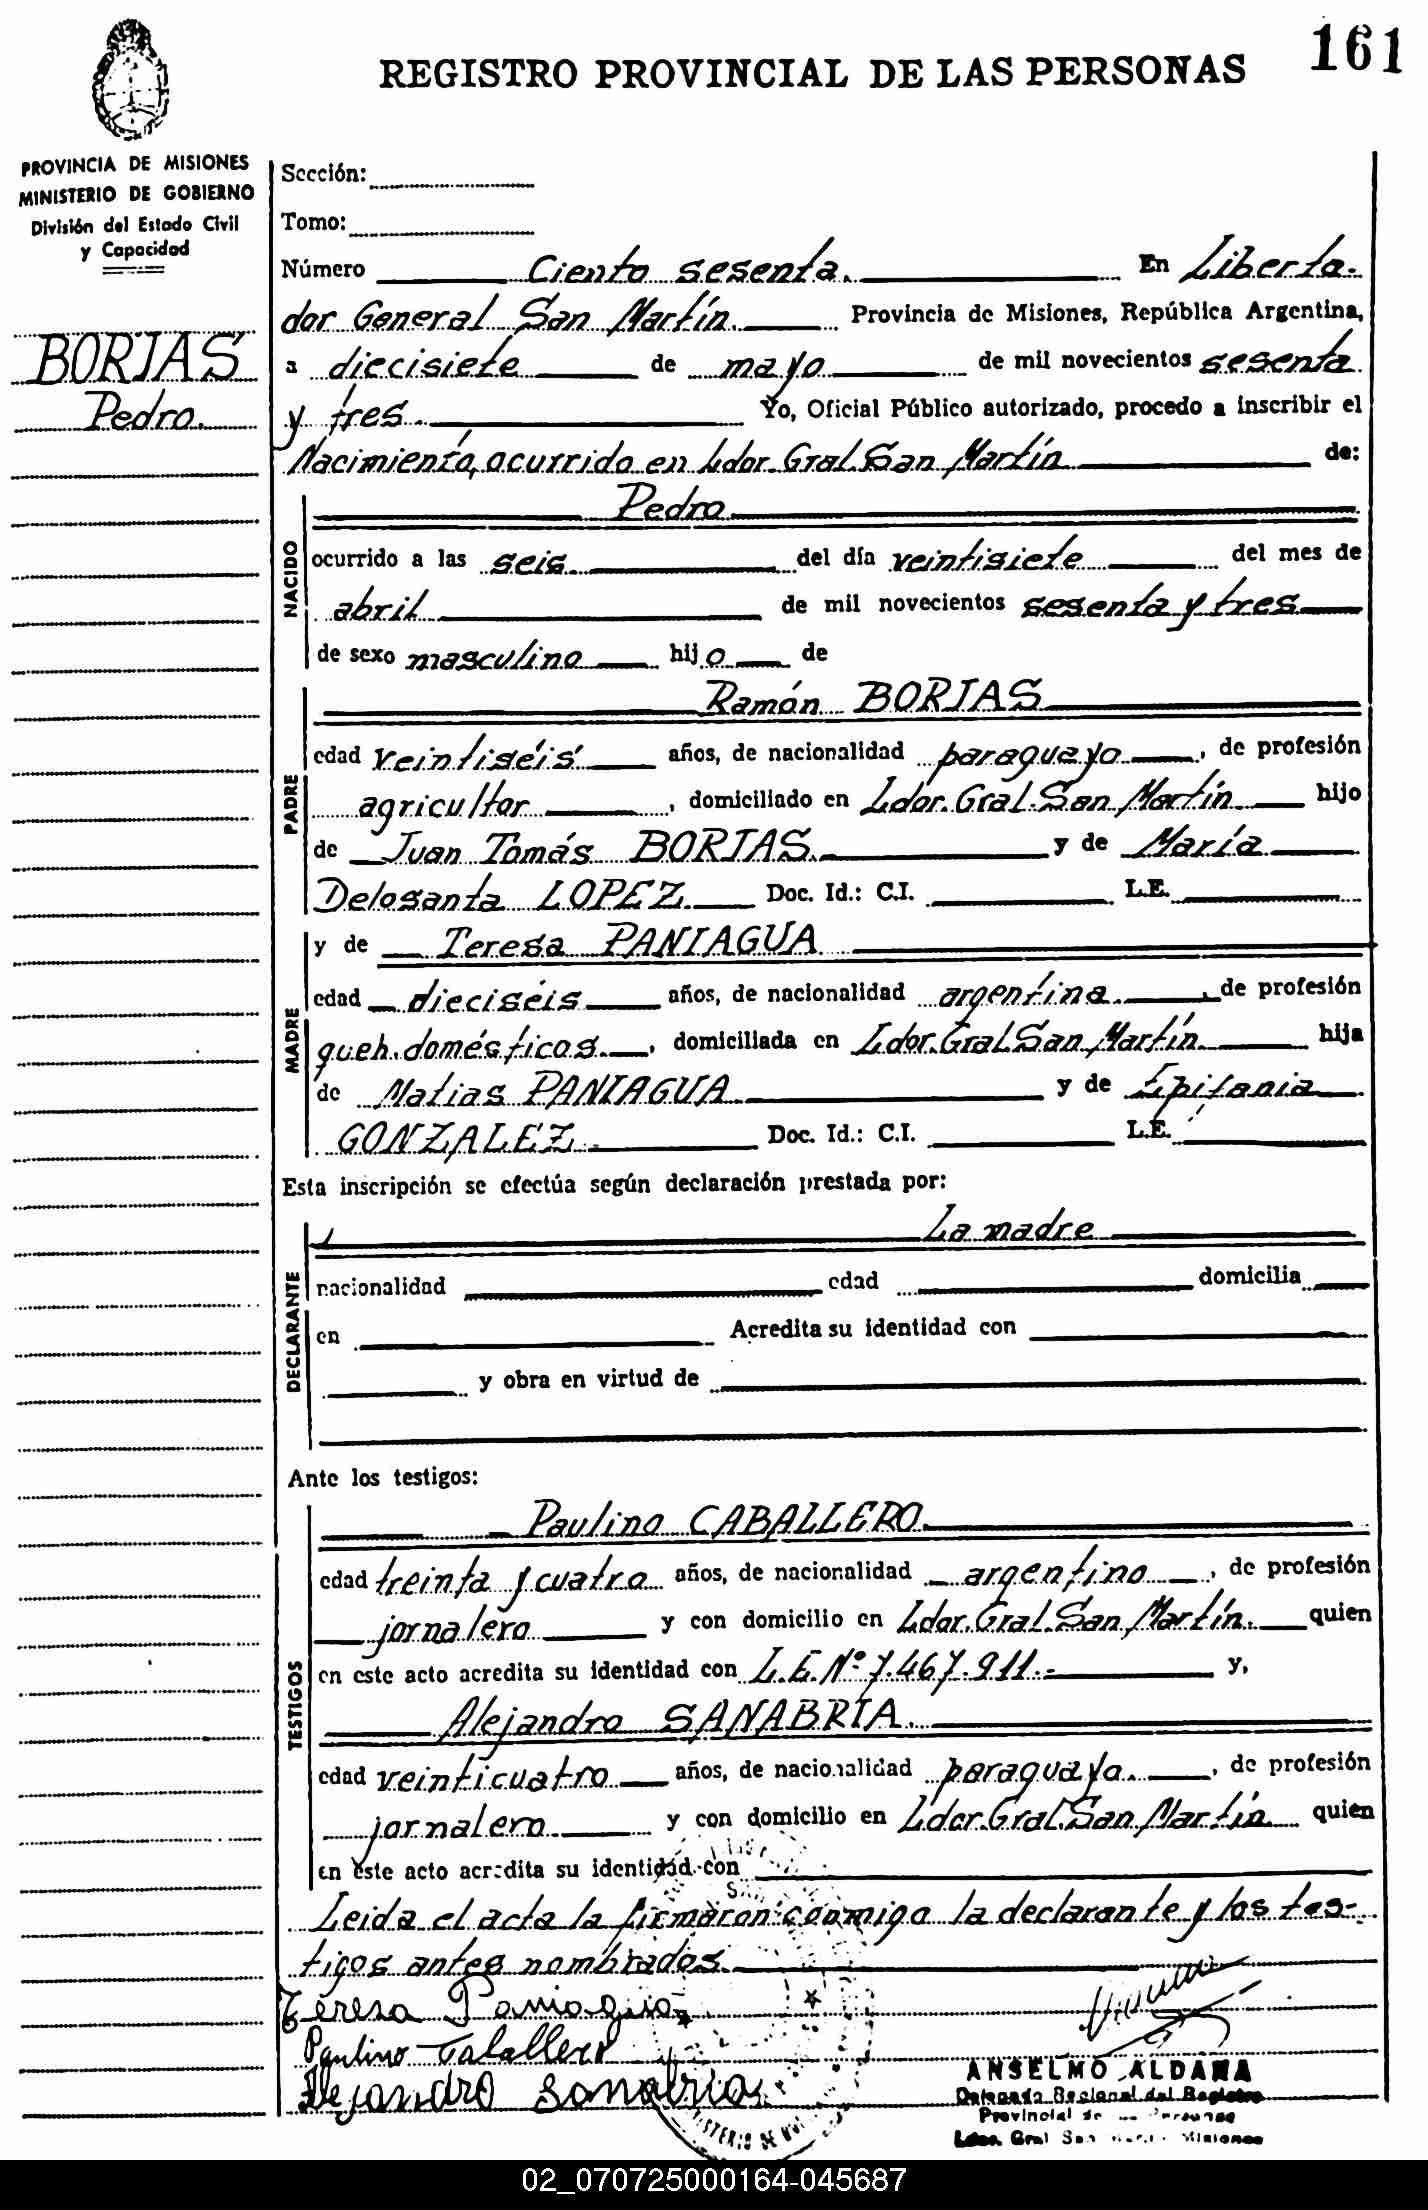 161
REGISTRO PROVINCIAL DE LAS PERSONAS
PROVINCIA DE MISIONES
MINISTERIO DE GOBIERNO
División del Estado Civil
y Capacidad
BORJAS
Pedro.
Sección:
Tomo:
Número Ciento sesenta. En Liberta-
dor General San Martín. Provincia de Misiones, República Argentina,
a diecisiete de mayo de mil novecientos sesenta
y tres. Yo, Oficial Público autorizado, procedo a inscribir el
Nacimiento, ocurrido en Ldor. Gral. San Martín de:
NACIDO
Pedro
ocurrido a las seis. del día veintisiete del mes de
abril de mil novecientos sesenta y tres
de sexo masculino hijo de
PADRE
Ramón BORJAS
edad veintiséis años, de nacionalidad paraguayo, de profesión
agricultor, domiciliado en Ldor. Gral. San Martín. hijo
de Juan Tomás BORJAS. y de María
Delosanta LOPEZ. Doc. Id.: C.I. L.E.
MADRE
y de Teresa PANIAGUA
edad dieciséis años, de nacionalidad argentina., de profesión
queh. domésticos., domiciliada en Ldor. Gral. San Martín. hija
de Matias PANIAGUA y de Epifania
GONZALEZ. Doc. Id.: C.I. L.E.
Esta inscripción se efectúa según declaración prestada por:
DECLARANTE
La madre
nacionalidad edad domicilia
en Acredita su identidad con
y obra en virtud de
Ante los testigos:
TESTIGOS
Paulino CABALLERO.
edad treinta y cuatro años, de nacionalidad argentino, de profesión
jornalero y con domicilio en Ldor. Gral. San Martín. quien
en este acto acredita su identidad con L.E. Nº 7.467.911.- y,
Alejandro SANABRIA.
edad veinticuatro años, de nacionalidad paraguaya., de profesión
jornalero. y con domicilio en Ldor. Gral. San Martín. quien
en este acto acredita su identidad con
Leida el acta la firmaron conmigo la declarante y los tes-
tigos antes nombrados.
Teresa Paniagua
Paulino Caballero
Alejandro Sanabria
ANSELMO ALDANA
Delegado Regional del Registro
Provincial de las Personas
Ldor. Gral San Martín Misiones
02_070725000164-045687